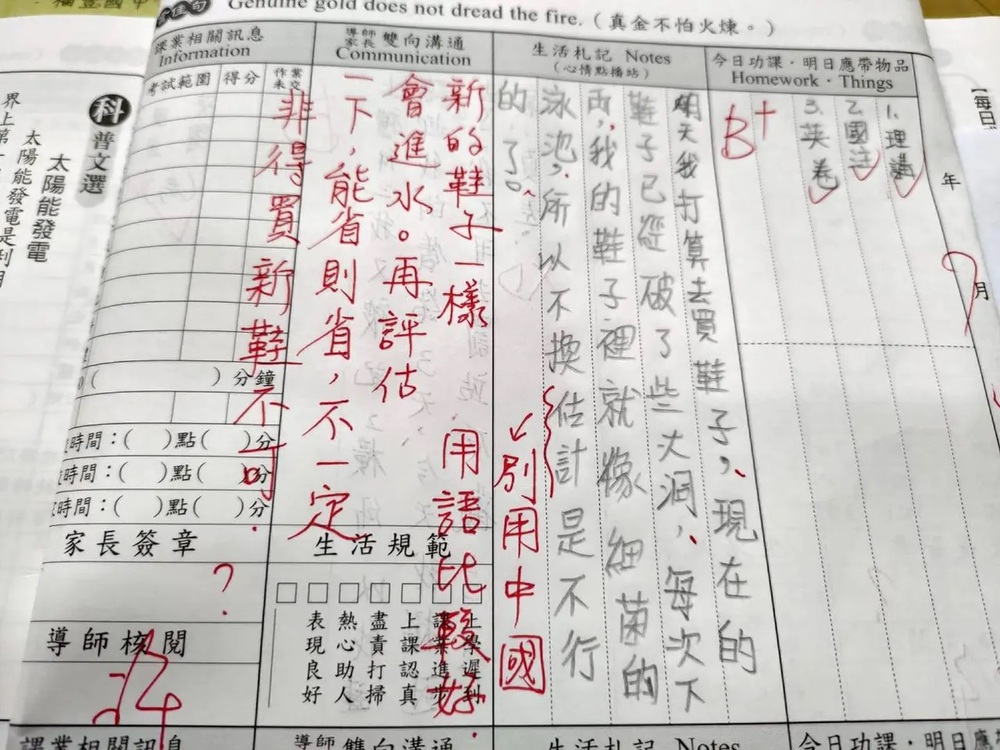 Genuine gold does not dread the fire.（真金不怕火煉。）
今日功課．明日應帶物品
Homework．Things
生活札記 Notes
（心情點播站）
導師
家長
雙向溝通
Communication
課業相關訊息
Information
考試範圍
得分
作業
未交
年
月
1. 理講
2. 國注
3. 英卷
B+
明天我打算去買鞋子,現在的
鞋子已經破了些大洞,每次下
雨,我的鞋子裡就像細菌的
泳池,所以不換估計是不行
的了。
別用中國
用語比較好.
新的鞋子一樣
會進水。再評估
一下,能省則省,不一定
非得買新鞋不可.
（ ）分鐘
時間：( )點( )分
時間：( )點( )分
時間：( )點( )分
家長簽章
?
導師核閱
生活規範
上學遲到
課業進步
上課認真
盡責打掃
熱心助人
表現良好
科普文選
太陽能發電
太陽能發電是利用
界上第一
課業相關訊息
導師
雙向溝通
生活札記 Notes
今日功課．明日應